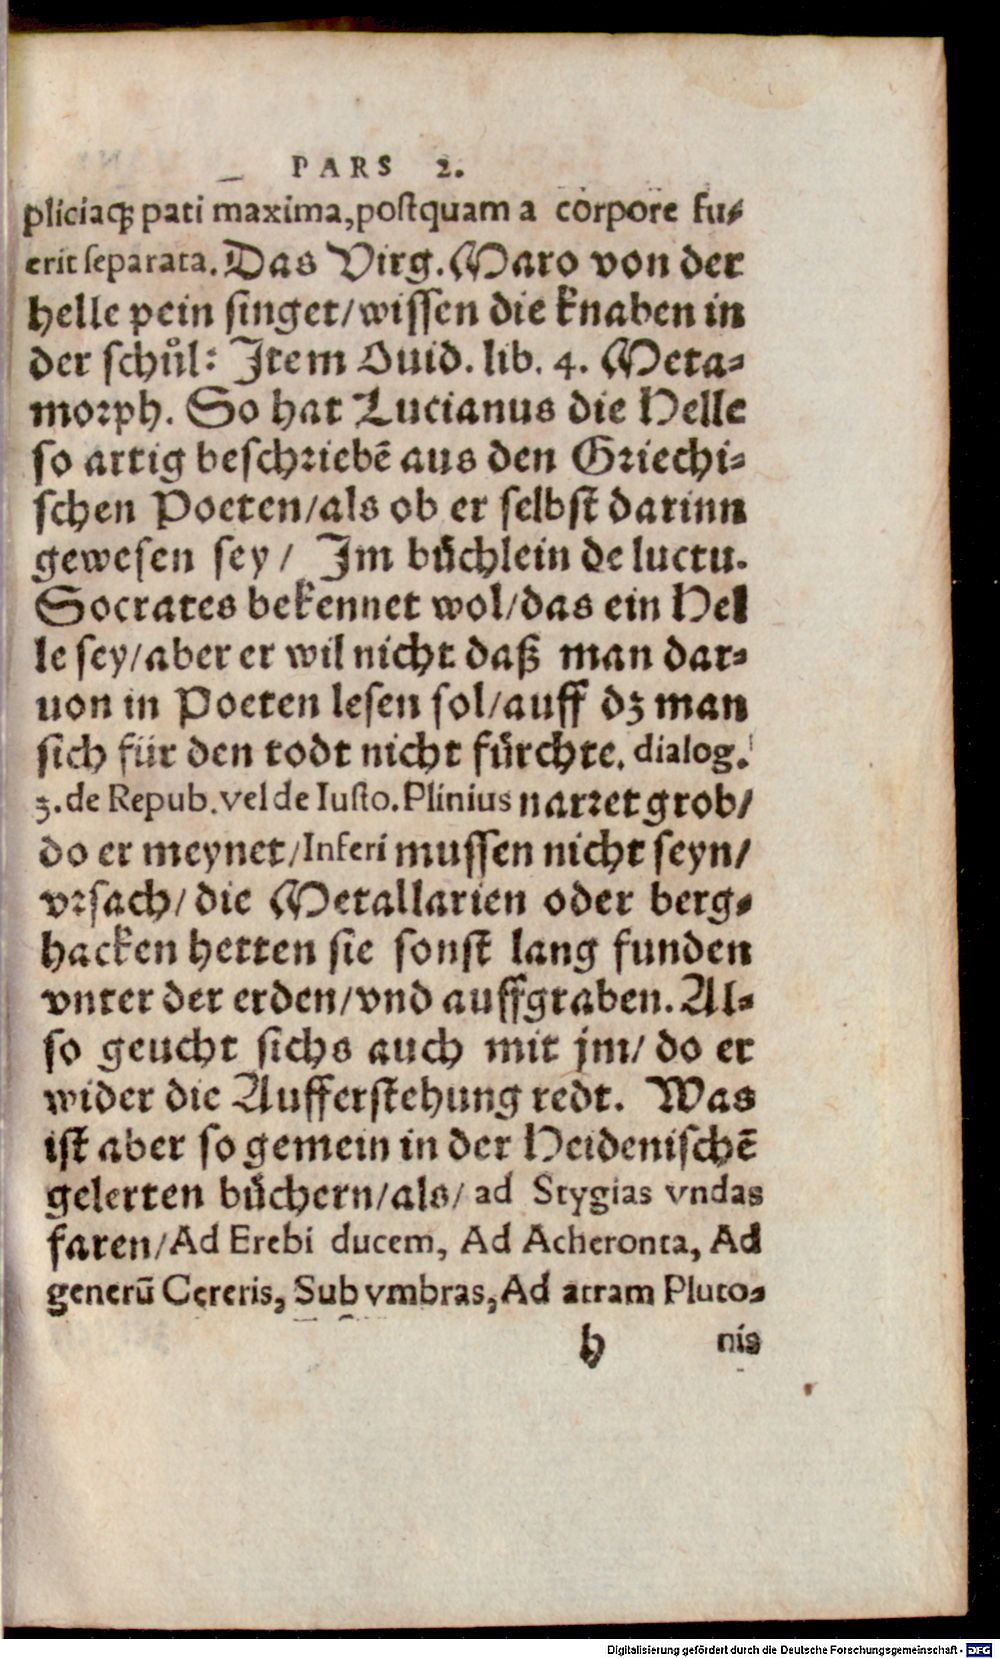 PARS 2.
pliciaq́; pati maxima, postquam a corpore fu-
erit separata. Das Virg. Maro von der
helle pein singet/wissen die knaben in
der schůl: Item Ouid. lib. 4. Meta-
morph. So hat Lucianus die Helle
so artig beschriebē aus den Griechi-
schen Poeten/als ob er selbst darinn
gewesen sey/ Im bůchlein de luctu.
Socrates bekennet wol/das ein Hel
le sey/aber er wil nicht daß man dar-
uon in Poeten lesen sol/auff dz man
sich für den todt nicht fürchte. dialog.
3. de Repub. vel de Iusto. Plinius narret grob/
do er meynet/Inferi mussen nicht seyn/
vrsach/ die Metallarien oder berg-
hacken hetten sie sonst lang funden
vnter der erden/vnd auffgraben. Al-
so geucht sichs auch mit jm/ do er
wider die Aufferstehung redt. Was
ist aber so gemein in der Heidenischē
gelerten büchern/als/ ad Stygias vndas
faren/Ad Erebi ducem, Ad Acheronta, Ad
generū Cereris, Sub vmbras, Ad atram Pluto-
h nis
Digitalisierung gefördert durch die Deutsche Forschungsgemeinschaft - DFG